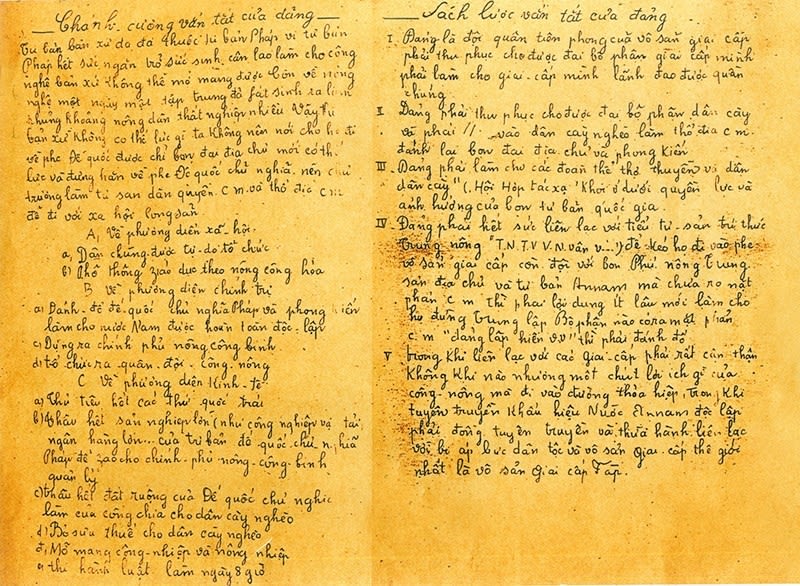 Chanh cương vắn tắt của đảng
Tư bản bản xứ đã thuộc tư bản Pháp vì tư bản
Pháp hết sức ngăn trở sức sinh sản làm cho công
nghệ bản xứ không thể mở mang được Còn về nông
nghệ một ngày một tập trung đã fát sinh ra lắm
khủng khoảng nông dân thất nghiệp nhiều Vậy tư
bản xứ không có thế lực gì ta không nên nói cho họ đi
về phe Đế quốc được chỉ bọn đại địa chủ mới có thế
lực và đứng hẳn về phe Đế quốc chủ nghĩa, nên chủ
trường làm tư sản dân quyền C.m và thổ địa C m
để đi với xã hội
A, Về phương diện xã hội
a, Dân chúng được tự do tổ chức
b) Phổ thông giáo dục theo nông công hóa
B Về phương diện chính trị
a) Đánh đổ đế quốc chủ nghĩa Pháp và phong kiến
làm cho nước Nam được hoàn toàn độc lập
c) Dựng ra chính phủ nông công binh
d) tổ chức ra quân đội công nông
C Về phương diện kinh tế
a) Thủ tiêu hết các thứ quốc trái
b) thâu hết sản nghiệp lớn (như công nghiệp vận tải
ngân hàng lớn... của tư bản đế quốc chủ nghĩa
Pháp để giao cho chính phủ nông công binh
quản lý
c) thâu hết đất ruộng của Đế quốc chủ nghĩa
làm của công chia cho dân cày nghèo
d) Bỏ sưu thuế cho dân cày nghèo
đ) Mở mang công nhiệp và nông nhiệp
e) thi hành luật làm ngày 8 giờ
Sách lược vắn tắt của đảng
I. Đảng là đội quân tiên phong của vô sản giai cấp
phải thu phục cho được đại bộ phận giai cấp mình
phải làm cho giai cấp mình lãnh đạo được quần
chúng
II Đảng phải thu phục cho được đại bộ phận dân cày
và phải // vào dân cày nghèo làm thổ địa C m.
đánh lại bọn đại địa chủ và phong kiến
III Đảng phải làm cho các đoàn thể thợ thuyền và dân
dân cày" (, Hội Hợp tác xạ" Khỏi ở dưới quyền lực và
ảnh hưởng của bọn tư bản quốc gia.
IV Đảng phải hết sức liên lạc với tiểu tư sản trí thức
trung nông "T.N.T.V V.N. vân v...!) để kéo họ đi vào phe
vô sản giai cấp còn đối với bọn Phú nông Trung
sản địa chủ và tư bản Annam mà chưa rõ mặt
phản c m thì phải lợi dụng ít lâu mới làm cho
họ đứng trung lập Bộ phận nào đã ra mặt phản
c m "đảng lập hiến vv" thì phải đánh đổ
V trong khi liên lạc với các giai cấp phải rất cẩn thận
không khi nào nhường một chút lợi ích gì của
công nông mà đi vào đường thỏa hiệp, trong khi
tuyên truyền khẩu hiệu Nước Annam độc lập
phải đồng tuyên truyền và thừa hành liên lạc
với bị áp bức dân tộc và vô sản giai cấp thế giới
nhất là vô sản giai cấp Fáp.